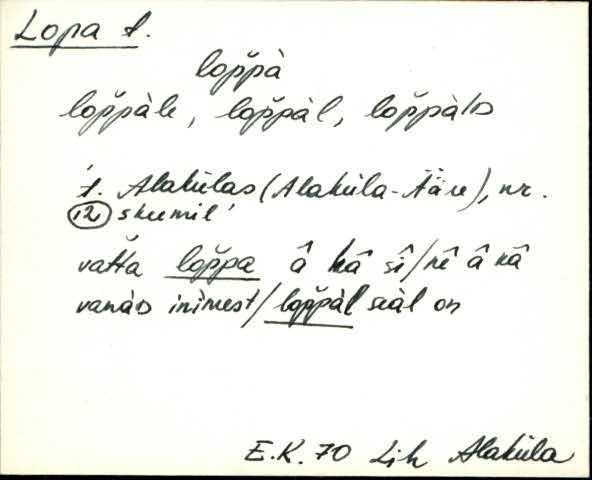 Lopa t.
lop̆pà
lop̆pàle, lop̆pàl, lop̆pàlD
't. Alakülas (Alaküla-Ääre), nr.
12 skeemil'
vat̆ta lop̆pa â kâ sî/nê â kâ
vanàD inìmest/lop̆pàl seàl on
E.K. 70 Lih Alaküla